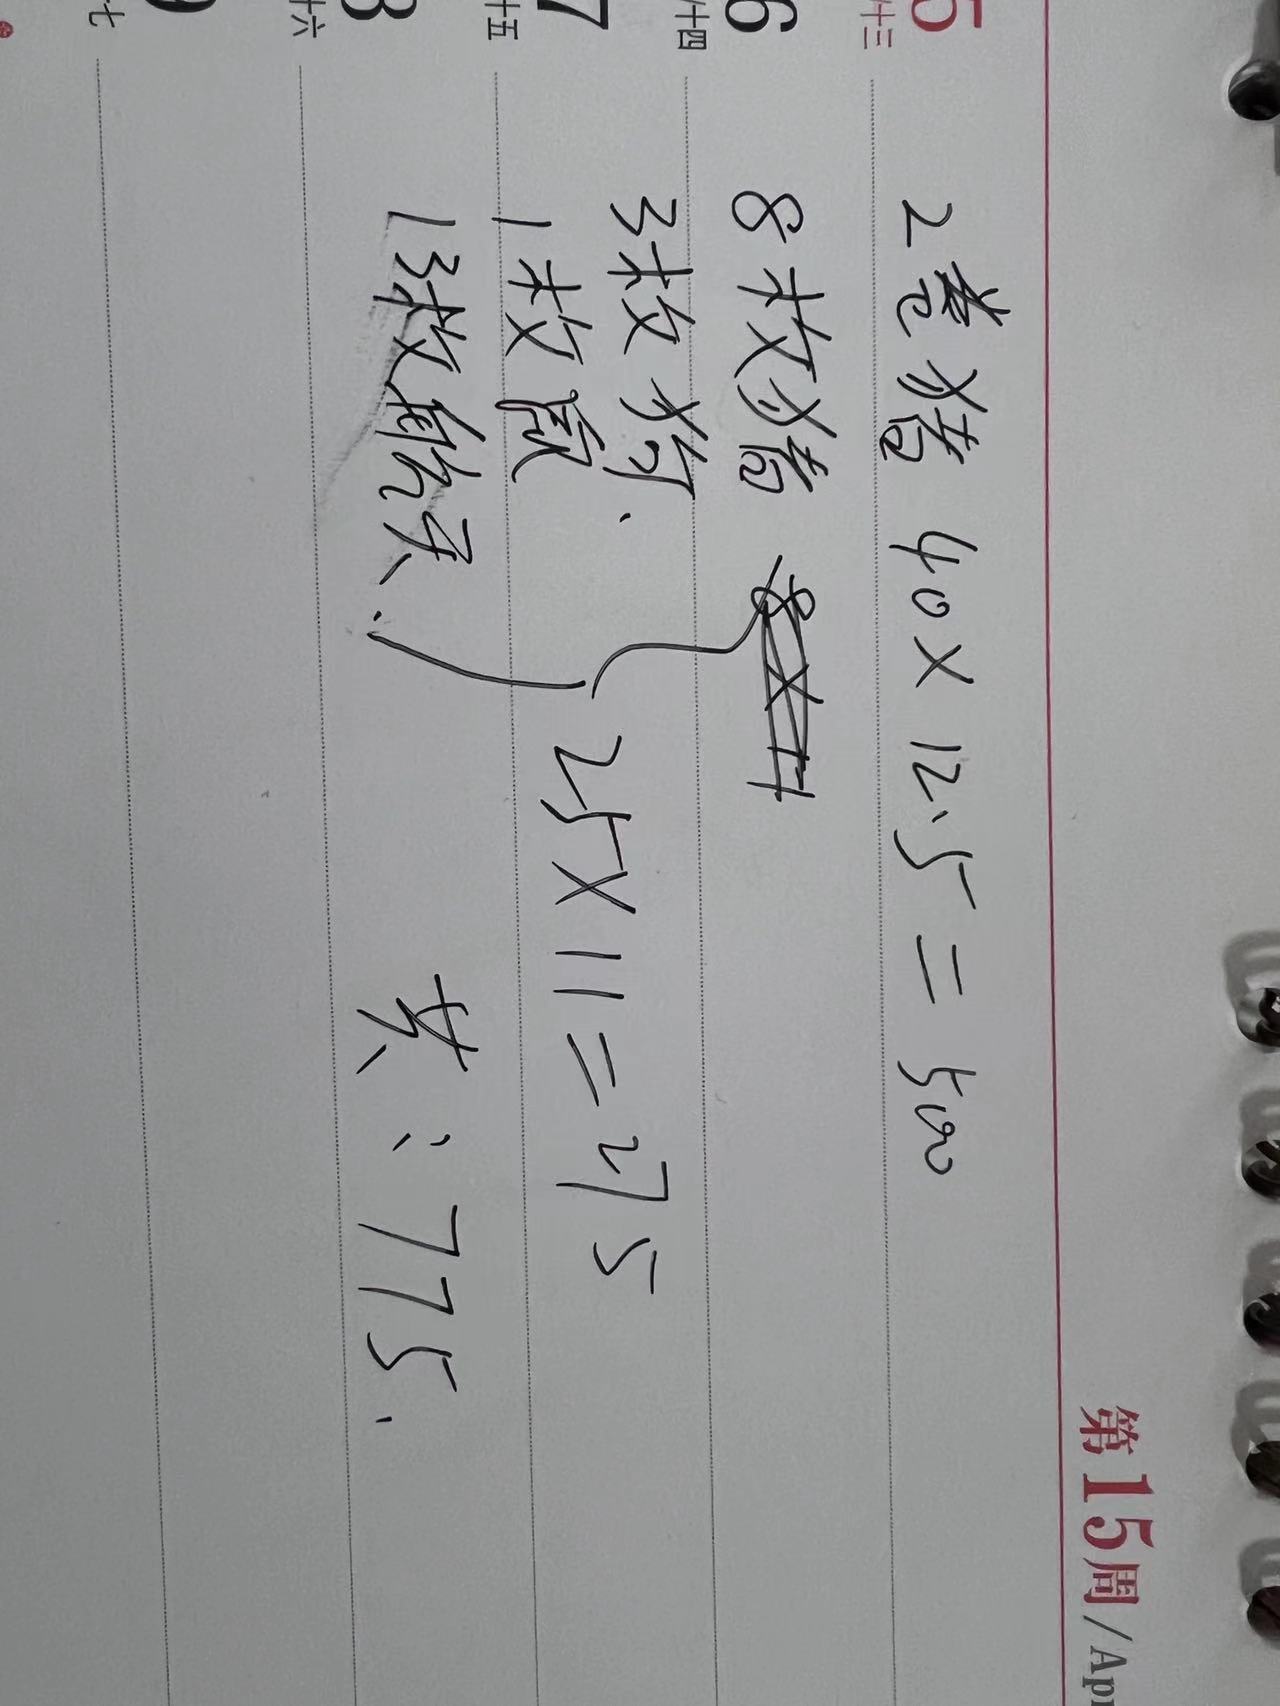 第15周/Ap
5
十三
2卷猪 40×12.5=500
6
十四
8枚猪
3枚狗.
7
十五
1枚鼠
25×11=275
8
十六
13枚航天.
共:775.
9
十七